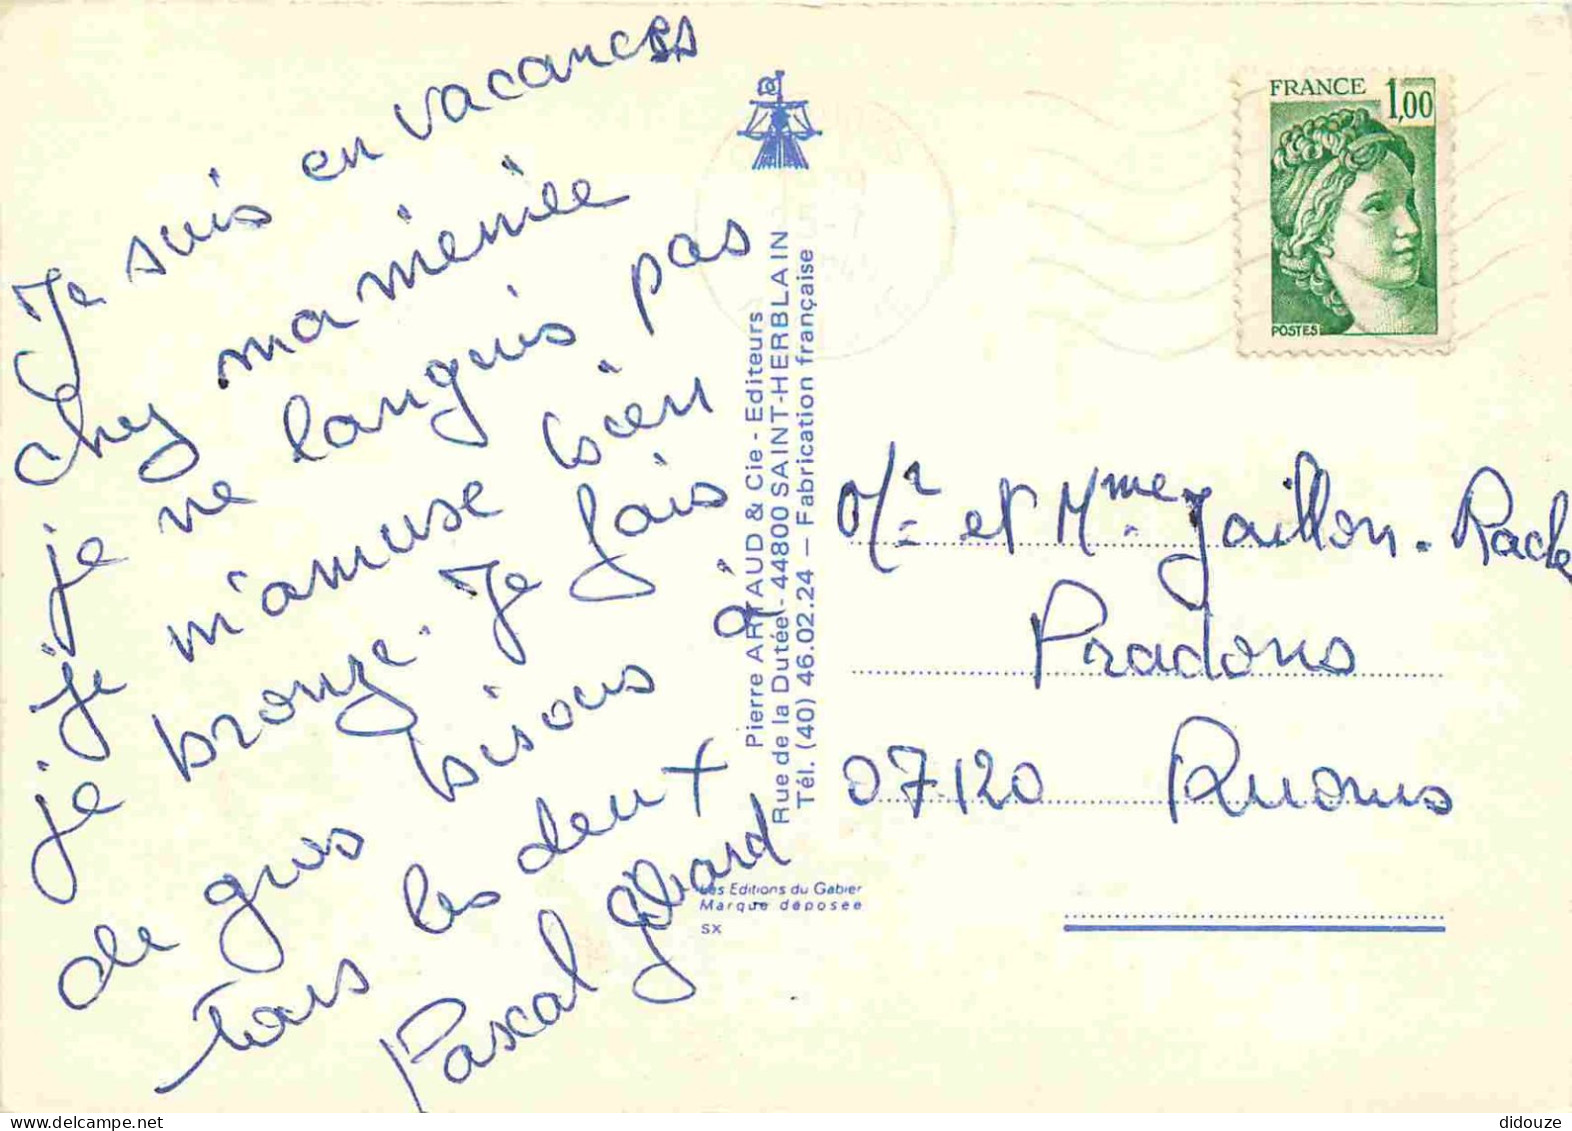 Je suis en vacances
chez ma mémée
je ne languis pas
je m'amuse bien
je bronze. Je fais
de gros bisous à
tous les deux
Pascal
Pierre ARTAUD & Cie - Editeurs
Rue de la Dutée - 44800 SAINT-HERBLAIN
Tél. (40) 46.02.24 – Fabrication française
Les Editions du Gabier
Marque déposée
SX
FRANCE 1,00
POSTES
Mr et Mme Jaillon-Rack
Pradons
07120 Ruoms
didouze